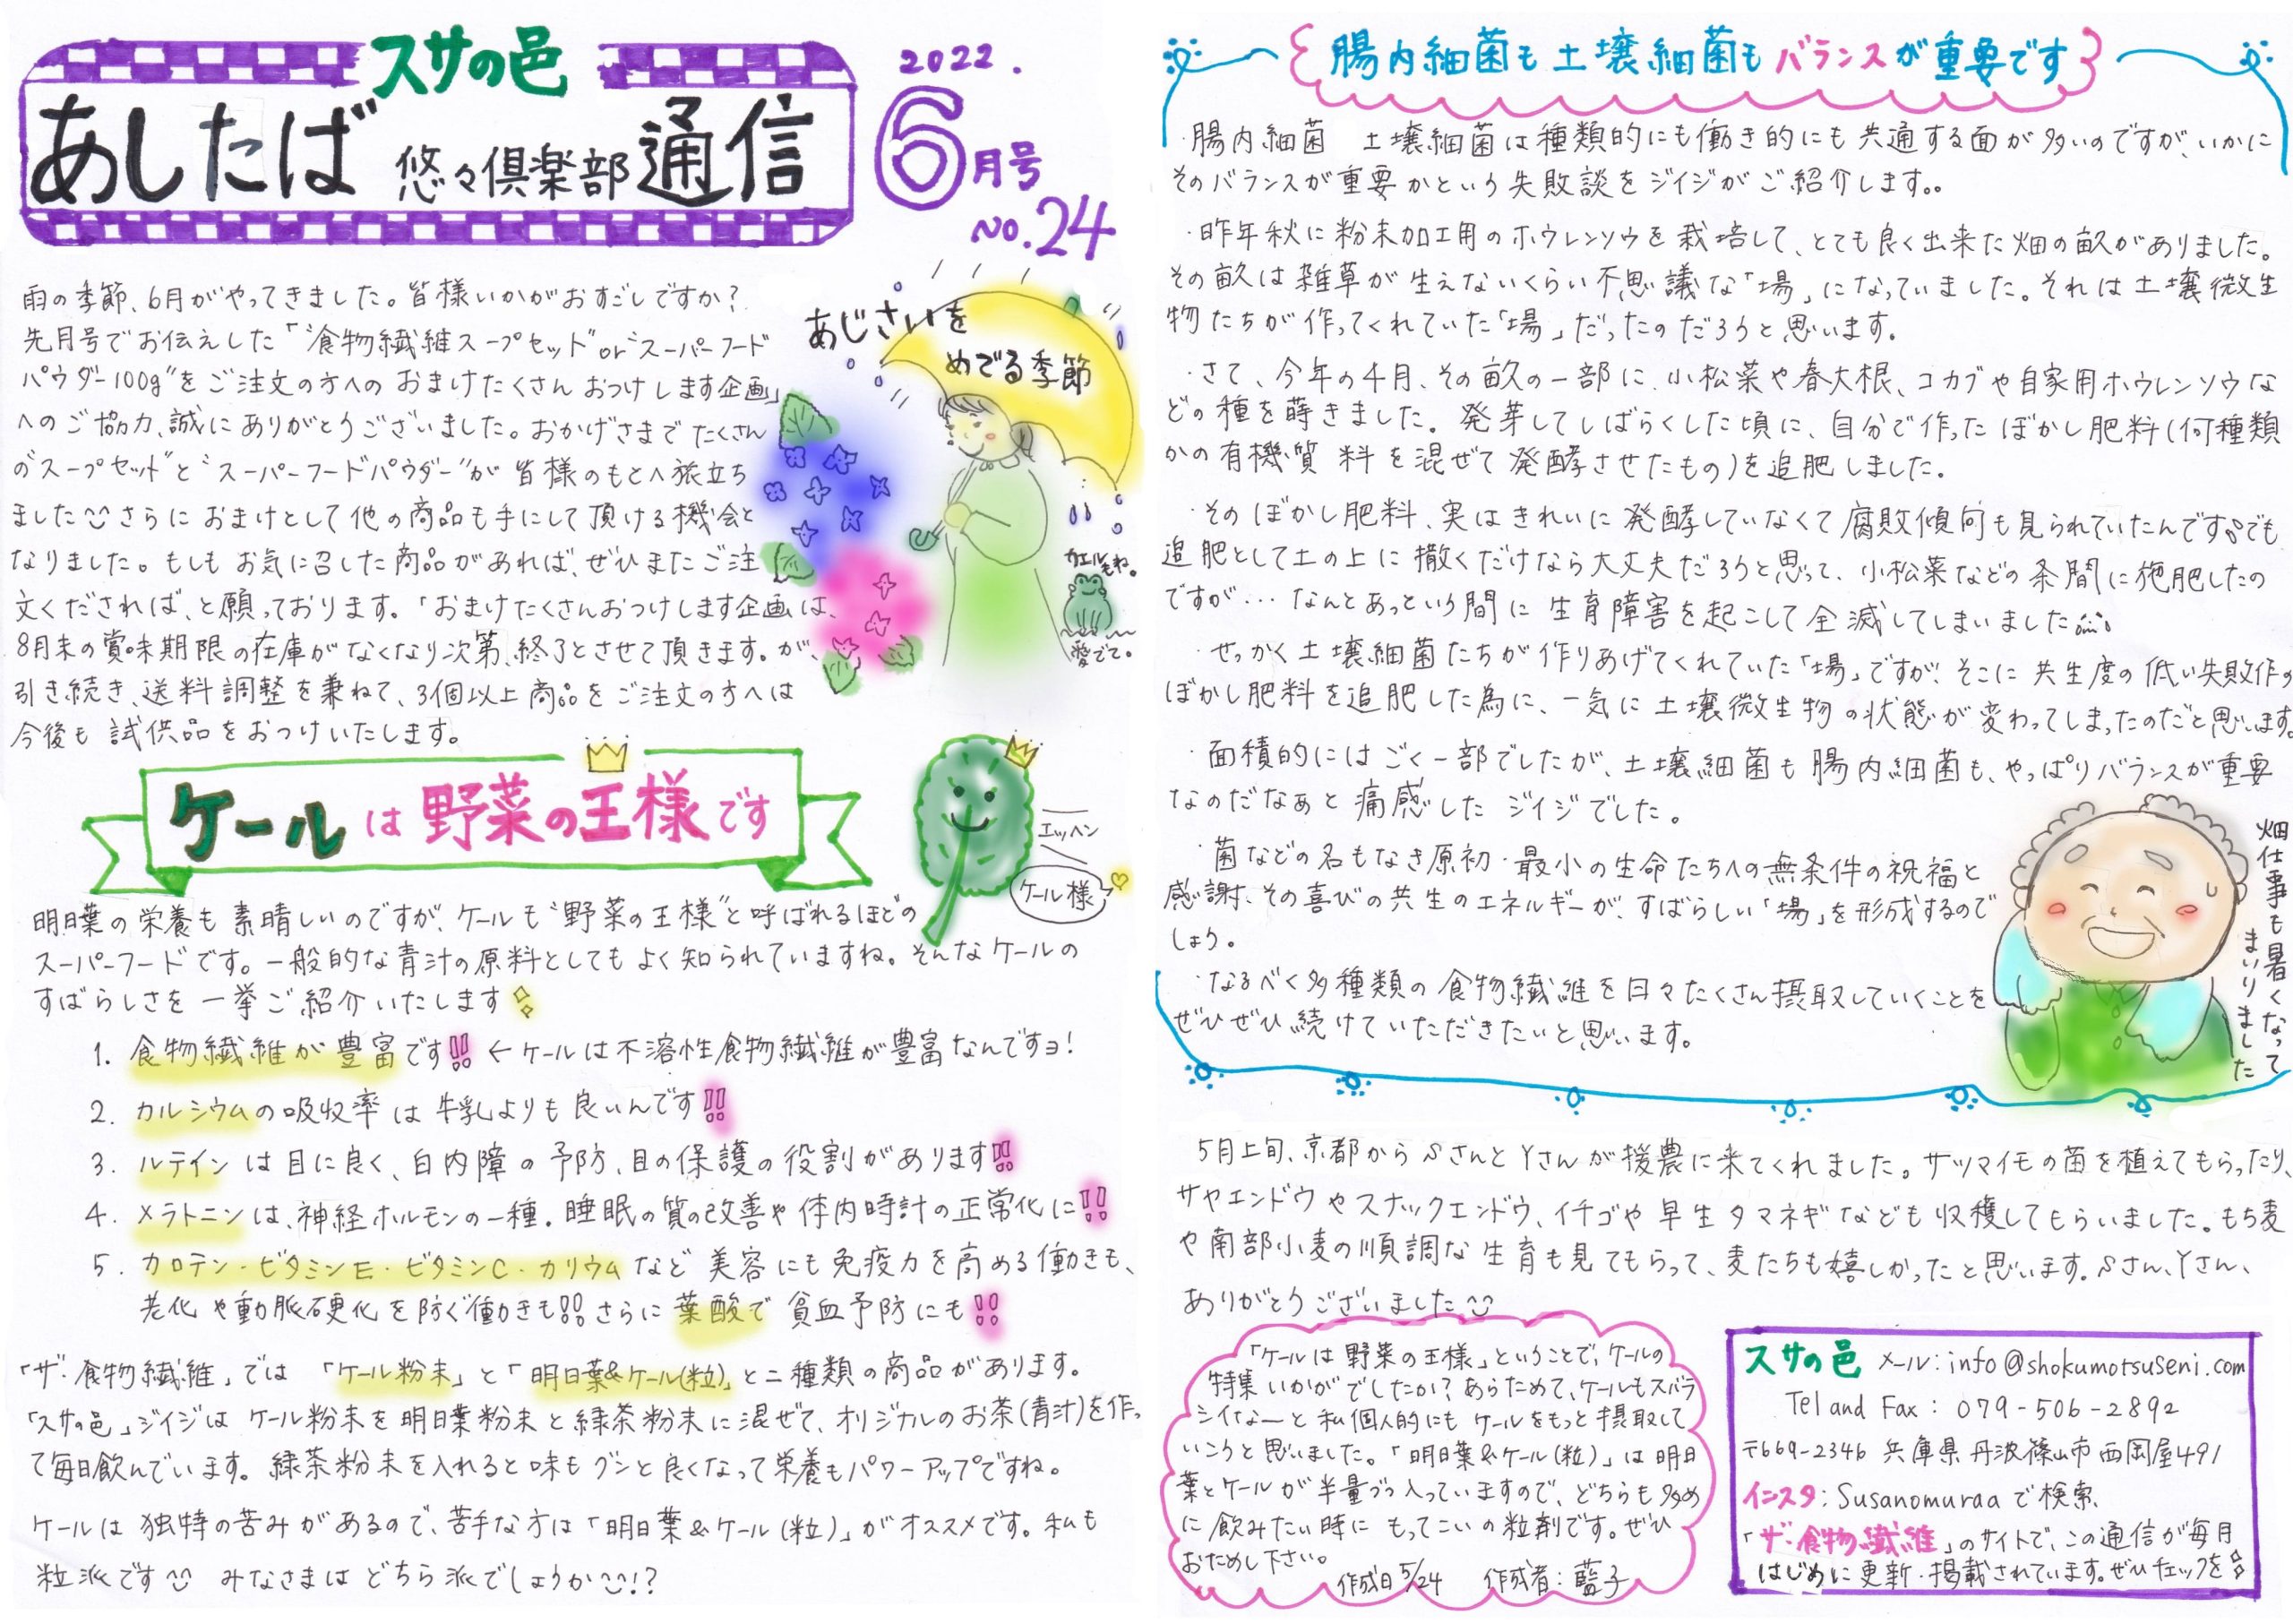 スサの邑
あしたば 悠々倶楽部 通信
2022.
6月号
No.24
雨の季節、6月がやってきました。皆様いかがおすごしですか?
先月号でお伝えした「“食物繊維スープセット”or“スーパーフード
パウダー100g”をご注文の方へのおまけたくさんおつけします企画」
へのご協力、誠にありがとうございました。おかげさまでたくさん
の“スープセット”と“スーパーフードパウダー”が皆様のもとへ旅立ち
ました さらにおまけとして他の商品も手にして頂ける機会と
なりました。もしもお気に召した商品があれば、ぜひまたご注
文くだされば、と願っております。「おまけたくさんおつけします企画は、
8月末の賞味期限の在庫がなくなり次第、終了とさせて頂きます。が、
引き続き、送料調整を兼ねて、3個以上商品をご注文の方へは
今後も試供品をおつけいたします。
あじさいを
めでる季節
カエルもね。
愛でて。
ケールは野菜の王様です
エッヘン
ケール様
明日葉の栄養も素晴しいのですが、ケールも“野菜の王様”と呼ばれるほどの
スーパーフードです。一般的な青汁の原料としてもよく知られていますね。そんなケールの
すばらしさを一挙ご紹介いたします
1. 食物繊維が豊富です!! ←ケールは不溶性食物繊維が豊富なんですョ!
2. カルシウムの吸収率は牛乳よりも良いんです!!
3. ルテインは目に良く、白内障の予防、目の保護の役割があります!!
4. メラトニンは、神経ホルモンの一種。睡眠の質の改善や体内時計の正常化に!!
5. カロテン・ビタミンE・ビタミンC・カリウムなど美容にも免疫力を高める働きも、
老化や動脈硬化を防ぐ働きも!! さらに葉酸で貧血予防にも!!
「ザ・食物繊維」では「ケール粉末」と「明日葉&ケール(粒)」と二種類の商品があります。
「スサの邑」ジイジはケール粉末を明日葉粉末と緑茶粉末に混ぜて、オリジナルのお茶(青汁)を作っ
て毎日飲んでいます。緑茶粉末を入れると味もグンと良くなって栄養もパワーアップですね。
ケールは独特の苦みがあるので、苦手な方は「明日葉&ケール(粒)」がオススメです。私も
粒派です みなさまはどちら派でしょうか!?
腸内細菌も土壌細菌もバランスが重要です
・腸内細菌 土壌細菌は種類的にも働き的にも共通する面が多いのですが、いかに
そのバランスが重要かという失敗談をジイジがご紹介します。。
・昨年秋に粉末加工用のホウレンソウを栽培して、とても良く出来た畑の畝がありました。
その畝は雑草が生えないくらい不思議な「場」になっていました。それは土壌微生
物たちが作ってくれていた「場」だったのだろうと思います。
・さて、今年の4月、その畝の一部に、小松菜や春大根、コカブや自家用ホウレンソウな
どの種を蒔きました。発芽してしばらくした頃に、自分で作ったぼかし肥料(何種類
かの有機質 料を混ぜて発酵させたもの)を追肥しました。
・そのぼかし肥料、実はきれいに発酵していなくて腐敗傾向も見られていたんです。でも
追肥として土の上に撒くだけなら大丈夫だろうと思って、小松菜などの条間に施肥したの
ですが…なんとあっという間に生育障害を起こして全滅してしまいました
・せっかく土壌細菌たちが作りあげてくれていた「場」ですが、そこに共生度の低い失敗作の
ぼかし肥料を追肥した為に、一気に土壌微生物の状態が変わってしまったのだと思います。
・面積的にはごく一部でしたが、土壌細菌も腸内細菌も、やっぱりバランスが重要
なのだなぁと痛感したジイジでした。
・菌などの名もなき原初・最小の生命たちへの無条件の祝福と
感謝、その喜びの共生のエネルギーが、すばらしい「場」を形成するので
しょう。
・なるべく多種類の食物繊維を日々たくさん摂取していくことを
ぜひぜひ続けていただきたいと思います。
畑仕事も暑くなって
まいりました
5月上旬、京都からSさんとYさんが援農に来てくれました。サツマイモの苗を植えてもらったり、
サヤエンドウやスナックエンドウ、イチゴや早生タマネギなども収穫してもらいました。もち麦
や南部小麦の順調な生育も見てもらって、麦たちも嬉しかったと思います。Sさん、Yさん、
ありがとうございました
「ケールは野菜の王様」ということで、ケールの
特集いかがでしたか?あらためて、ケールもスバラ
シイなーと私個人的にもケールをもっと摂取して
いこうと思いました。「明日葉&ケール(粒)」は明日
葉とケールが半量づつ入っていますので、どちらも多め
に飲みたい時にもってこいの粒剤です。ぜひ
おためし下さい。
作成日5/24 作成者:藍子
スサの邑 メール:info@shokumotsuseni.com
Tel and Fax : 079-506-2892
〒669-2346 兵庫県丹波篠山市西岡屋491
インスタ:Susanomuraaで検索、
「ザ・食物繊維」のサイトで、この通信が毎月
はじめに更新・掲載されています。ぜひチェックを